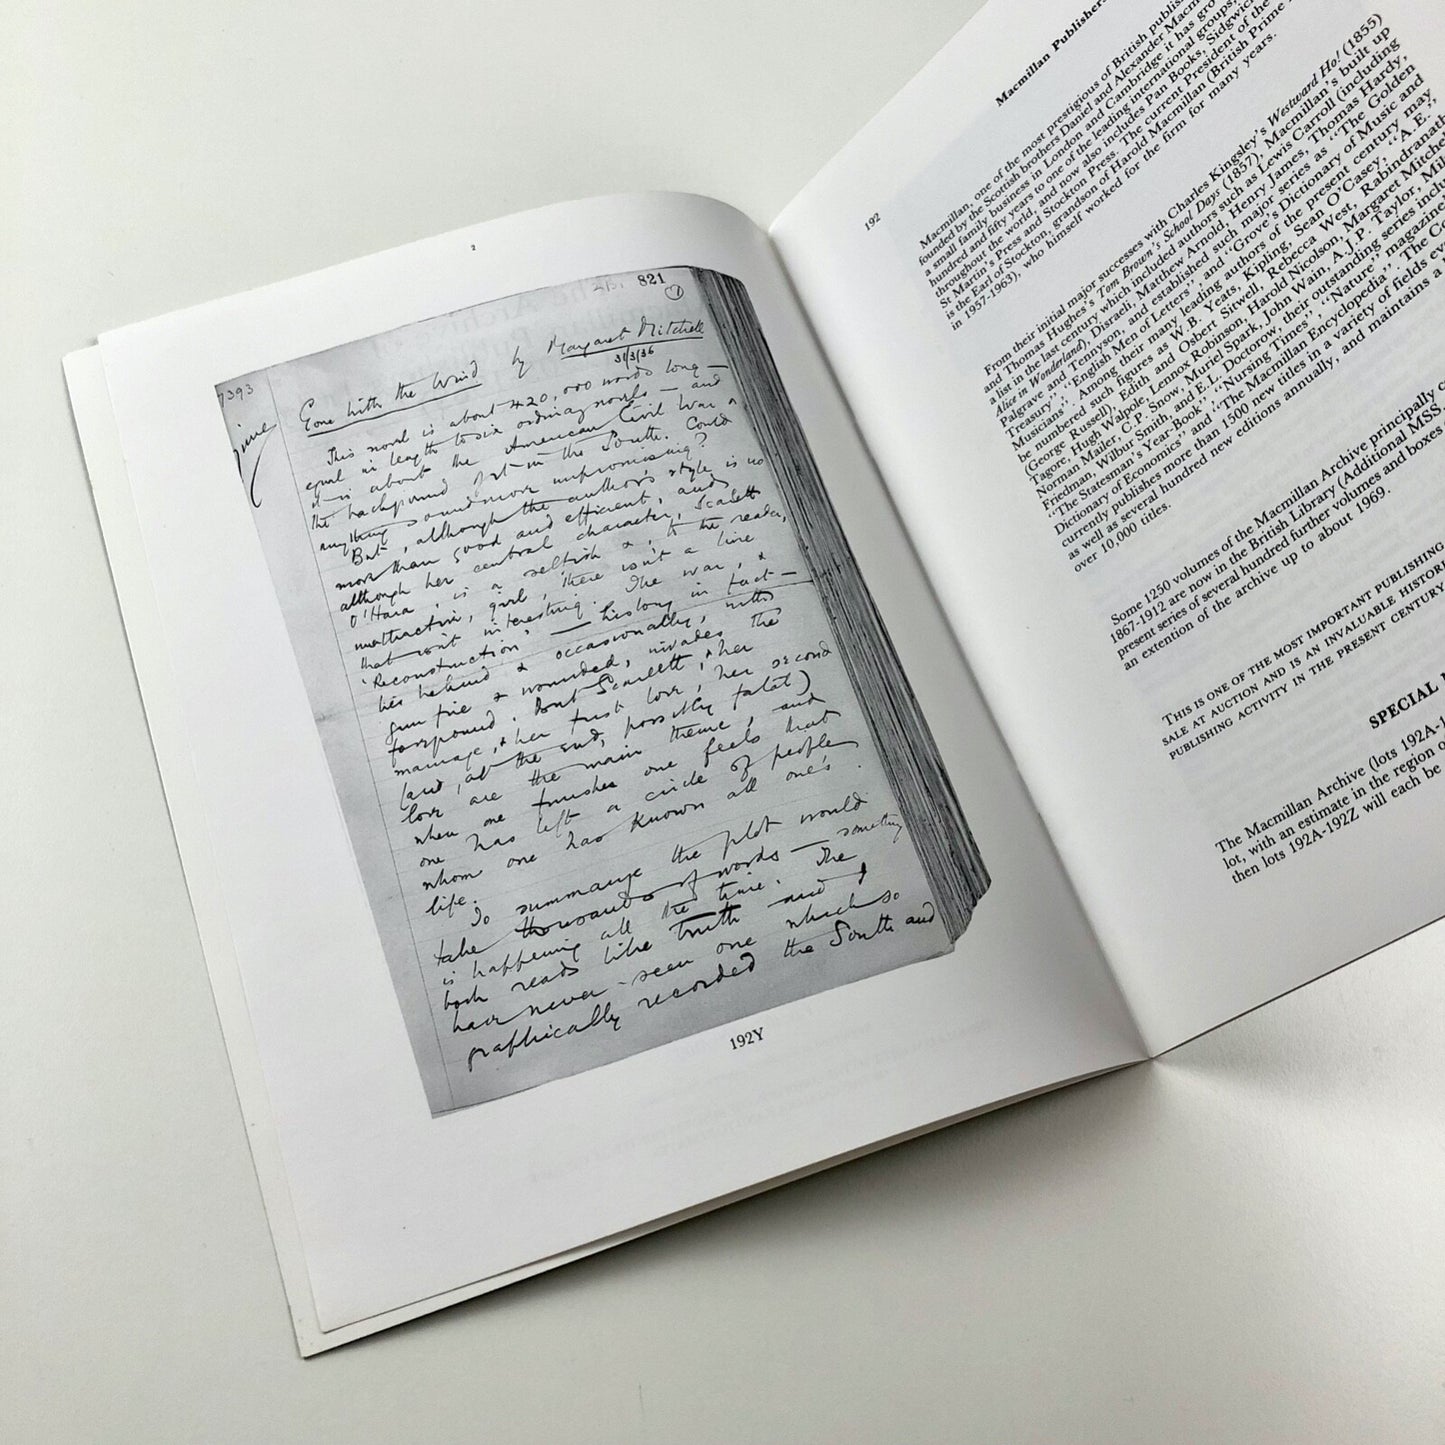 2
821
7393
Gone with the Wind by Margaret Mitchell
31/3/36
This novel is about 420,000 words long —
equal in length to six ordinary novels — and
it is about the American Civil War &
the background is in the South. Could
anything sound more unpromising?
But, although the author's style is no
more than good and efficient, and
although her central character, Scarlett
O'Hara, is a selfish &, to the reader,
unattractive, girl, there isn't a line
that isn't interesting. The war, &
'Reconstruction', — history in fact —
lies behind & occasionally, with
gun fire & wounded, invades the
foreground. But Scarlett, & her
marriage, & her first love, her second
(and, at the end, possibly fatal)
love are the main theme, and
when one finishes one feels that
one has left a circle of people
whom one has known all one's
life.
To summarize the plot would
take thousands of words — something
is happening all the time. The
book reads like truth and I
have never seen one which so
graphically recorded the South and
192Y
Macmillan Publishers
192
Macmillan, one of the most prestigious of British publis
founded by the Scottish brothers Daniel and Alexander Macm
a small family business in London and Cambridge it has gro
hundred and fifty years to one of the leading international groups,
throughout the world, and now also includes Pan Books, Sidgwick
St Martin's Press and Stockton Press. The current President of the
is the Earl of Stockton, grandson of Harold Macmillan (British Prime
in 1957-1963), who himself worked for the firm for many years.
From their initial major successes with Charles Kingsley's Westward Ho! (1855)
and Thomas Hughes's Tom Brown's School Days (1857), Macmillan's built up
a list in the last century which included authors such as Lewis Carroll (including
Alice in Wonderland), Disraeli, Matthew Arnold, Henry James, Thomas Hardy,
Palgrave and Tennyson, and established such major series as "The Golden
Treasury", "English Men of Letters", and "Grove's Dictionary of Music and
Musicians". Among their many leading authors of the present century may
be numbered such figures as W.B. Yeats, Kipling, Sean O'Casey, "A.E.",
(George Russell), Edith and Osbert Sitwell, Rebecca West, Rabindranath
Tagore, Hugh Walpole, Lennox Robinson, Harold Nicolson, Margaret Mitchel
Norman Mailer, C.P. Snow, Muriel Spark, John Wain, A.J.P. Taylor, Mil
Friedman, Wilbur Smith, and E.L. Doctorow; their outstanding series inclu
"The Statesman's Year-Book", "Nursing Times", "Nature" magazine
Dictionary of Economics" and "The Macmillan Encyclopedia". The Co
currently publishes more than 1500 new titles in a variety of fields eve
as well as several hundred new editions annually, and maintains a
over 10,000 titles.
Some 1250 volumes of the Macmillan Archive principally c
1867-1912 are now in the British Library (Additional MSS.
present series of several hundred further volumes and boxes
an extention of the archive up to about 1969.
THIS IS ONE OF THE MOST IMPORTANT PUBLISHING
SALE AT AUCTION AND IS AN INVALUABLE HISTORI
PUBLISHING ACTIVITY IN THE PRESENT CENTURY
SPECIAL
The Macmillan Archive (lots 192A-1
lot, with an estimate in the region o
then lots 192A-192Z will each be